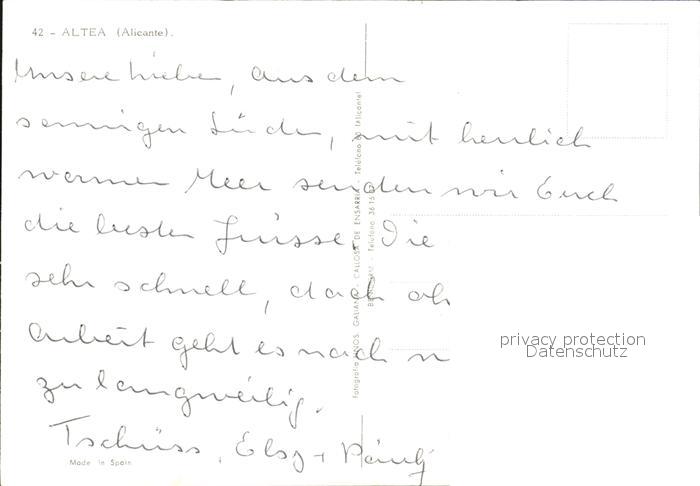 42 - ALTEA (Alicante).
Unsere Lieben, aus dem
sonnigen Süden, mit herrlich
warmen Meer senden wir Euch
die besten Grüsse. Die
sehr schnell, doch oh
Arbeit geht es nach
zu langweilig.
Tschüss, Elsy +
Made in Spain
Fotografía HNOS. GALIANA - CALLOSA DE ENSARRIA - Teléfono 60 (Alicante)
privacy protection
Datenschutz